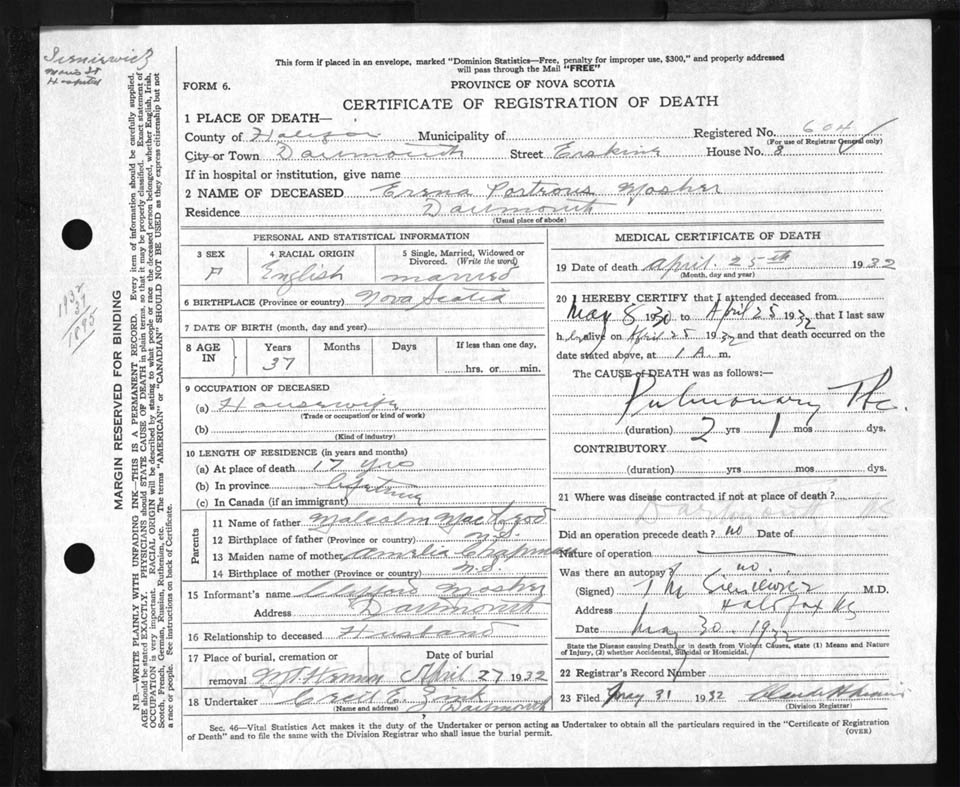 Morris St
Hospital
This form if placed in an envelope, marked "Dominion Statistics—Free, penalty for improper use, $300," and properly addressed
will pass through the Mail "FREE"
FORM 6.
PROVINCE OF NOVA SCOTIA
CERTIFICATE OF REGISTRATION OF DEATH
1 PLACE OF DEATH—
County of Halifax Municipality of Registered No. 604
(For use of Registrar General only)
City or Town Dartmouth Street Erskine House No. 8
If in hospital or institution, give name
2 NAME OF DECEASED Erena Porteous Mosher
Residence Dartmouth
(Usual place of abode)
PERSONAL AND STATISTICAL INFORMATION
3 SEX 4 RACIAL ORIGIN 5 Single, Married, Widowed or
Divorced. (Write the word)
F English married
6 BIRTHPLACE (Province or country) Nova Scotia
7 DATE OF BIRTH (month, day and year)
8 AGE IN Years Months Days If less than one day,
37 hrs. or min.
9 OCCUPATION OF DECEASED
(a) Housewife
(Trade or occupation or kind of work)
(b)
(Kind of industry)
10 LENGTH OF RESIDENCE (in years and months)
(a) At place of death 17 yrs
(b) In province lifetime
(c) In Canada (if an immigrant)
Parents
11 Name of father Malcolm MacLeod
12 Birthplace of father (Province or country) N.S.
13 Maiden name of mother Amelia Chapman
14 Birthplace of mother (Province or country) N.S.
15 Informant's name Mosher
Address Dartmouth
16 Relationship to deceased Husband
17 Place of burial, cremation or removal Date of burial
Mt. Hermon April 27 1932
18 Undertaker Cecil E. Zink
(Name and address) Dartmouth
MEDICAL CERTIFICATE OF DEATH
19 Date of death April 25th 1932
(Month, day and year)
20 I HEREBY CERTIFY that I attended deceased from
May 8 1930 to April 25 1932 that I last saw
her alive on April 25 1932 and that death occurred on the
date stated above, at 1 A. m.
The CAUSE of DEATH was as follows:—
Pulmonary Tbc.
(duration) 2 yrs 1 mos dys.
CONTRIBUTORY
(duration) yrs. mos. dys.
21 Where was disease contracted if not at place of death?
Dartmouth
Did an operation precede death? no Date of
Nature of operation
Was there an autopsy? no.
(Signed) M.D.
Address Halifax NS
Date May 30. 1932
State the Disease causing Death, or in death from Violent Causes, state (1) Means and Nature
of Injury, (2) whether Accidental, Suicidal or Homicidal.
22 Registrar's Record Number
23 Filed May 31 1932
(Division Registrar)
Sec. 46—Vital Statistics Act makes it the duty of the Undertaker or person acting as Undertaker to obtain all the particulars required in the "Certificate of Registration
of Death" and to file the same with the Division Registrar who shall issue the burial permit.
(OVER)
MARGIN RESERVED FOR BINDING
N.B.—WRITE PLAINLY WITH UNFADING INK—THIS IS A PERMANENT RECORD. Every item of information should be carefully supplied.
AGE should be stated EXACTLY. PHYSICIANS should STATE CAUSE OF DEATH in plain terms, so that it may be properly classified. Exact statement of
OCCUPATION is very important. RACIAL ORIGIN will be described by stating to what people or race the deceased person belonged, whether English, Irish,
Scotch, French, German, Russian, Ruthenian, etc. The terms "AMERICAN" or "CANADIAN" SHOULD NOT BE USED as they express citizenship but not
a race or people. See instructions on back of Certificate.
1932
37
1895